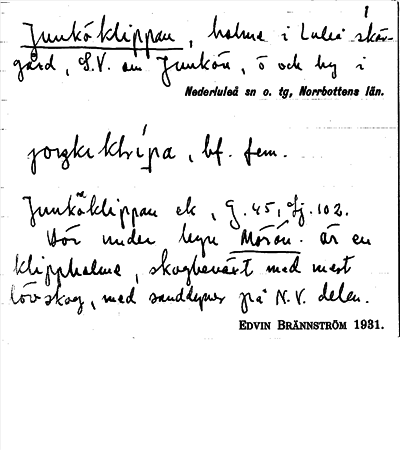 1
Junköklippan, holme i Luleå skär-
gård, S.V. om Junkön, ö och by i
Nederluleå sn o. tg, Norrbottens län.
bf. fem.
Junköklippan ek, G. 45, Sj. 102.
Hör under byn Mörön. är en
klippholme, skogbevärt med mest
lövskog, med sanddyner på N.V. delen.
EDVIN BRÄNNSTRÖM 1931.